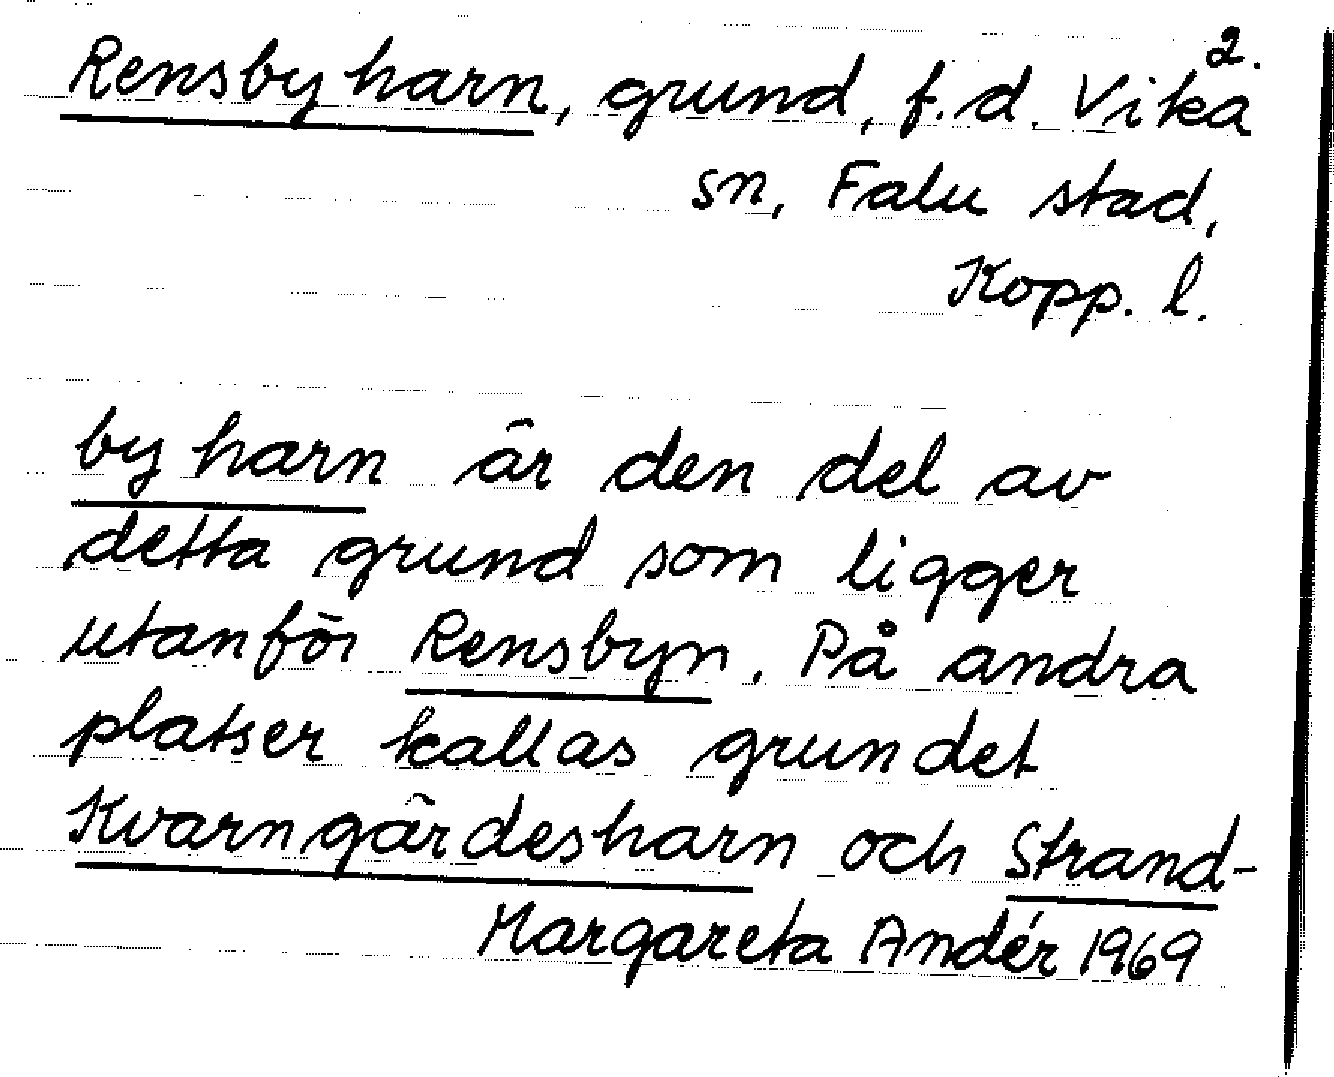 2.
Rensbyharn, grund, f.d. Vika
sn, Falu stad,
Kopp. l.
byharn är den del av
detta grund som ligger
utanför Rensbyn. På andra
platser kallas grundet
Kvarngärdesharn och Strand-
Margareta Andér 1969